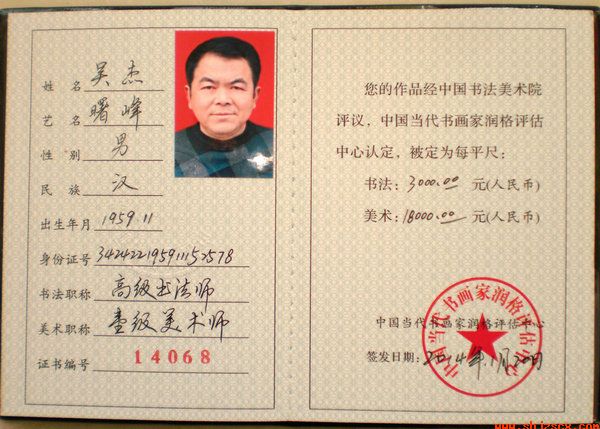 姓 名 吴杰
艺 名 曙峰
性 别 男
民 族 汉
出生年月 1959.11
身份证号 342422195911152578
书法职称 高级书法师
美术职称 壹级美术师
证书编号 14068
您的作品经中国书法美术院
评议，中国当代书画家润格评估
中心认定，被定为每平尺：
书法：3000.00 元(人民币)
美术：18000.00 元(人民币)
中国当代书画家润格评估中心
签发日期：2014年1月20日
中国当代书画家润格评估中心